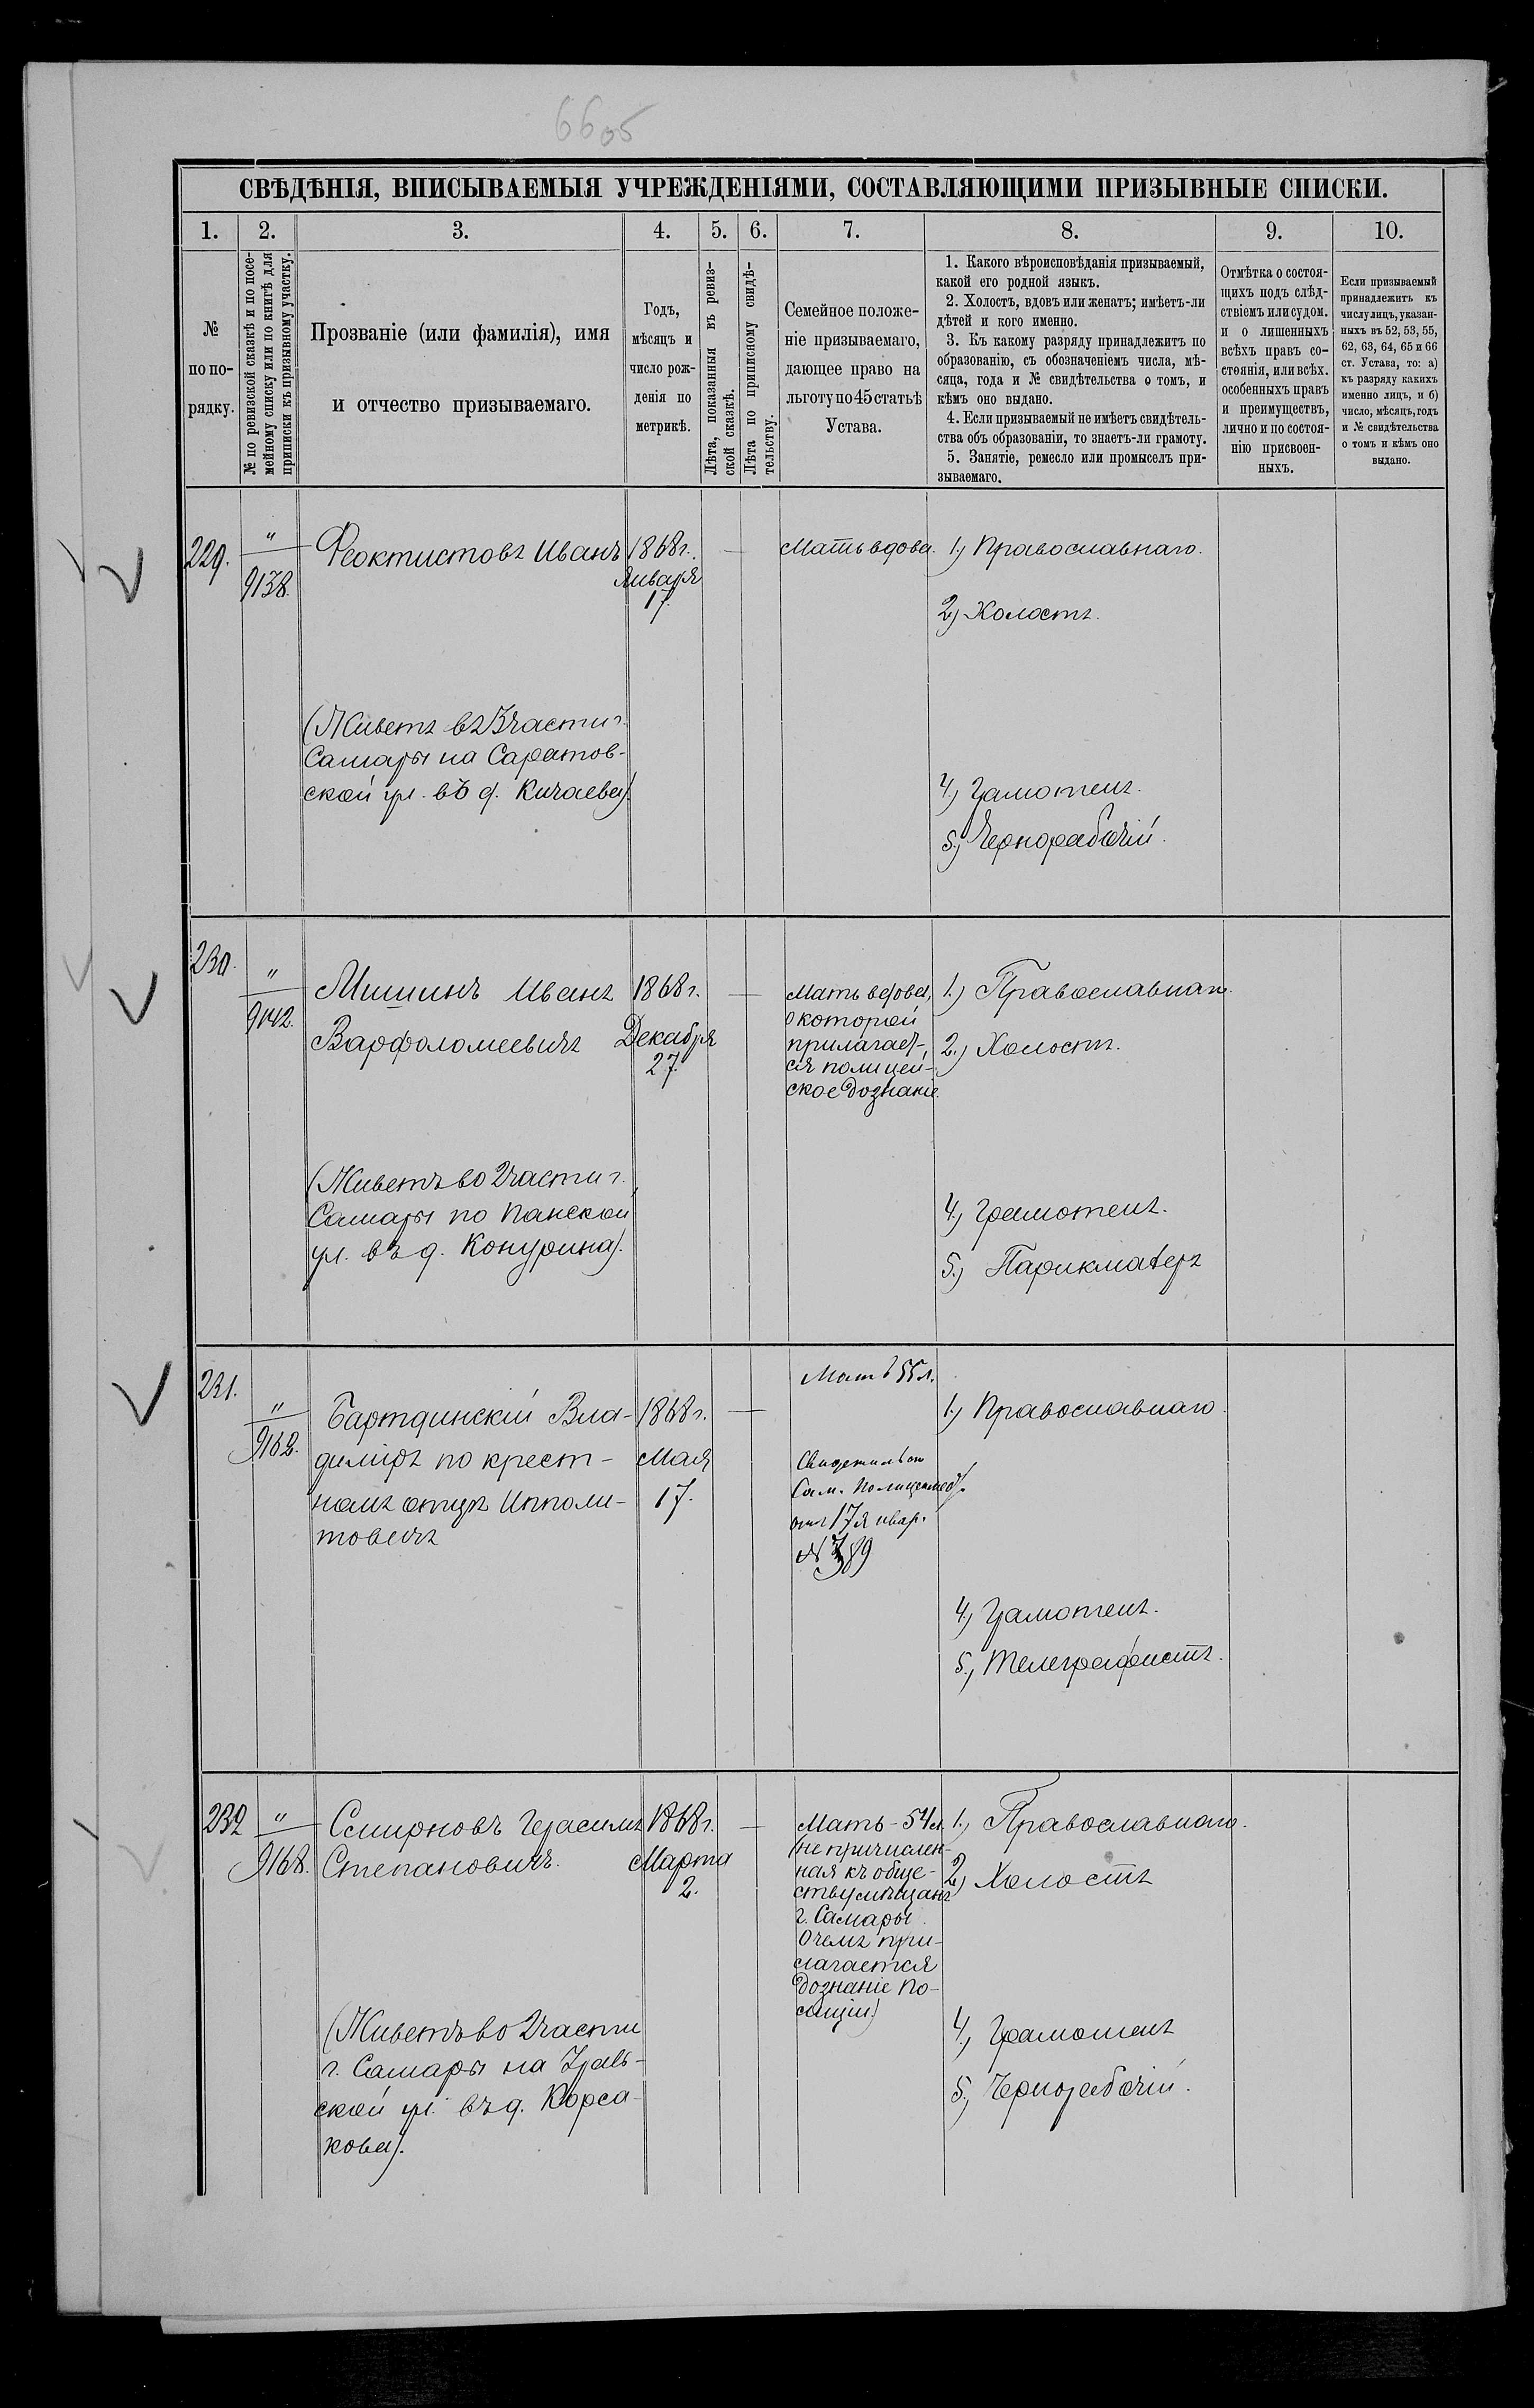 6605
СВѢДѢНІЯ, ВПИСЫВАЕМЫЯ УЧРЕЖДЕНІЯМИ, СОСТАВЛЯЮЩИМИ ПРИЗЫВНЫЕ СПИСКИ.
1. 2. 3. 4. 5. 6. 7. 8. 9. 10.
№
по по-
рядку.
№ по ревизской сказкѣ и по посе-
мейному списку или по книгѣ для
приписки къ призывному участку.
Прозваніе (или фамилія), имя
и отчество призываемаго.
Годъ,
мѣсяцъ и
число рож-
денія по
метрикѣ.
Лѣта, показанныя въ ревиз-
ской сказкѣ.
Лѣта по приписному свидѣ-
тельству.
Семейное положе-
ніе призываемаго,
дающее право на
льготу по 45 статьѣ
Устава.
1. Какого вѣроисповѣданія призываемый,
какой его родной языкъ.
2. Холостъ, вдовъ или женатъ; имѣетъ-ли
дѣтей и кого именно.
3. Къ какому разряду принадлежитъ по
образованію, съ обозначеніемъ числа, мѣ-
сяца, года и № свидѣтельства о томъ, и
кѣмъ оно выдано.
4. Если призываемый не имѣетъ свидѣтель-
ства объ образованіи, то знаетъ-ли грамоту.
5. Занятіе, ремесло или промыселъ при-
зываемаго.
Отмѣтка о состоя-
щихъ подъ слѣд-
ствіемъ или судом.
и о лишенныхъ
всѣхъ правъ со-
стоянія, или всѣх.
особенныхъ правъ
и преимуществъ,
лично и по состоя-
нію присвоен-
ныхъ.
Если призываемый
принадлежитъ къ
числу лицъ, указан-
ныхъ въ 52, 53, 55,
62, 63, 64, 65 и 66
ст. Устава, то: а)
къ разряду какихъ
именно лицъ, и б)
число, мѣсяцъ, годъ
и № свидѣтельства
о томъ и кѣмъ оно
выдано.
229.
"
9138.
Феоктистовъ Иванъ
(Живетъ въ 3 части г.
Самары на Саратов-
ской ул. въ д. Кичаева).
1868 г.
Января
17.
Мать вдова.
1.) Православнаго.
2.) Холостъ.
4.) Грамотенъ.
5.) Чернорабочій.
230.
"
9142.
Мишинъ Иванъ
Варфоломеевичъ
(Живетъ во 2 части г.
Самары по Панской
ул. въ д. Конурина).
1868 г.
Декабря
27.
Мать вдова,
о которой
прилагает-
ся полицей-
ское дознаніе.
1.) Православнаго.
2.) Холостъ.
4.) Грамотенъ.
5.) Парикмахеръ
231.
"
9162.
Бартдинскій Вла-
димiръ по крест-
номъ отцѣ Ипполи-
товичъ
1868 г.
Мая
17.
Мать 55 л.
Свидетельст
Сам. Полицейм
от 17 Январ.
№ 389
1.) Православнаго.
4.) Грамотенъ.
5.) Телеграфистъ.
232
"
9168.
Смирновъ Герасимъ
Степановичъ.
(Живетъ во 2 части
г. Самары на Ураль-
ской ул. въ д. Корса-
кова).
1868 г.
Марта
2.
Мать - 54 л.
(не причислен-
ная къ обще-
ству мѣщанъ
г. Самары
о чемъ при-
лагается
дознаніе по-
лиціи)
1.) Православнаго.
2.) Холостъ
4.) Грамотенъ
5.) Чернорабочій.